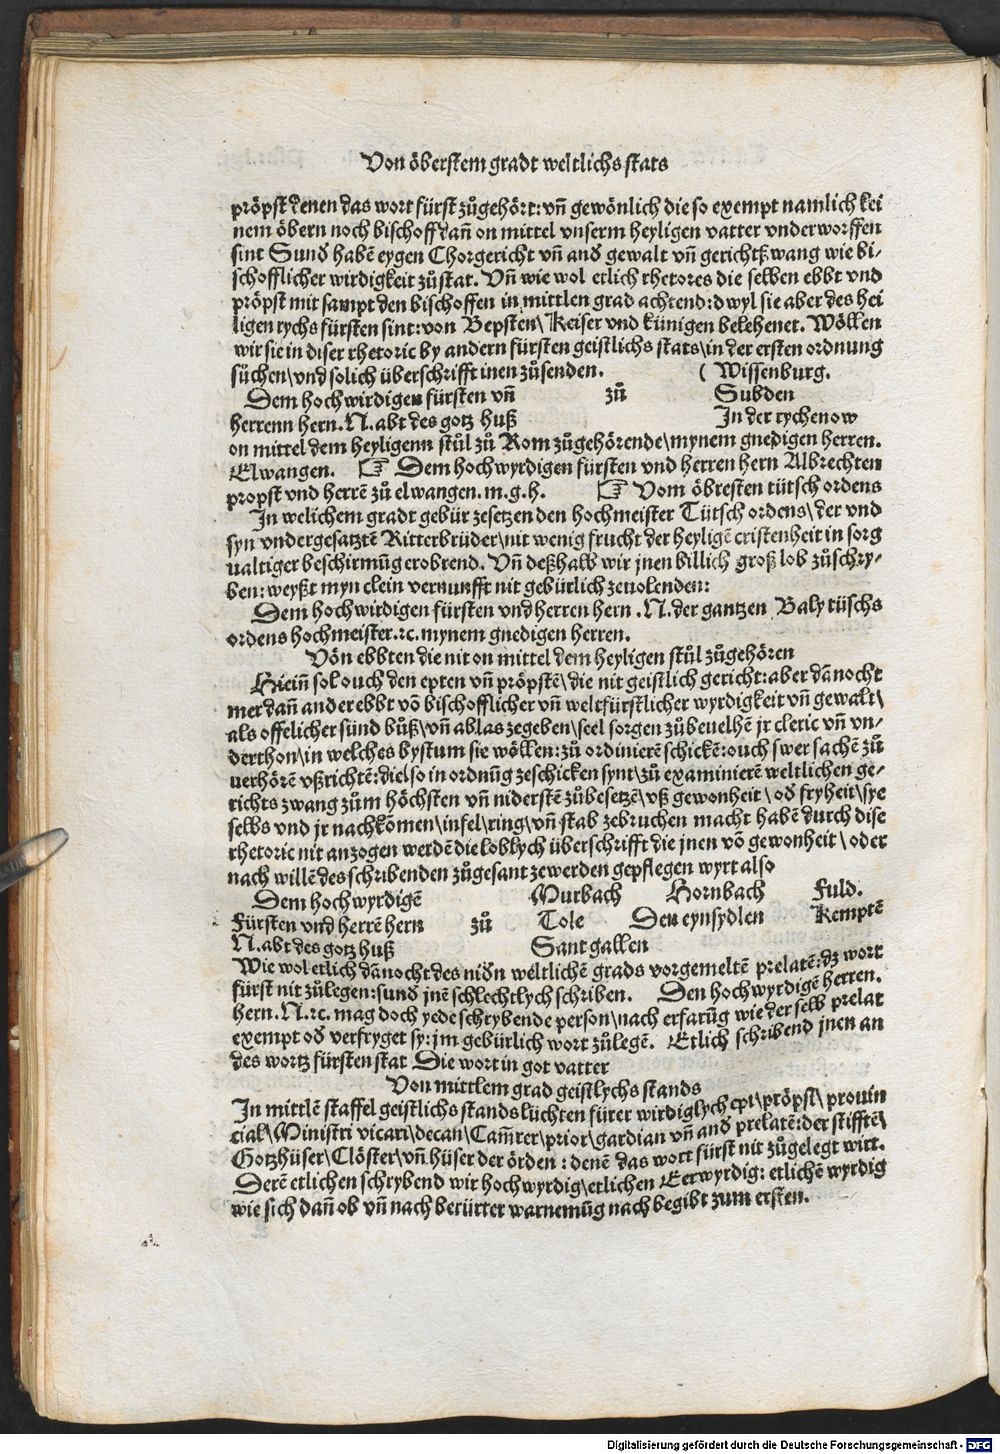 Von öberstem gradt weltlichs stats
pröpst denen das wort fürst zůgehört: vñ gewönlich die so exempt namlich kei
nem öbern noch bischoff dañ on mittel vnserm heyligen vatter vnderworffen
sint Sunđ habē eygen Chorgericht vñ anđ gewalt vñ gerichtzwang wie bi-
schofflicher wirdigkeit zůstat. Vñ wie wol etlich rhetores die selben ebbt vnd
pröpst mit sampt den bischoffen in mittlen grad achtend: dwyl sie aber des hei
ligen rychs fürsten sint: von Bepsten\ Keiser vnd künigen belehenet. Wöllen
wir sie in diser rhetoric by andern fürsten geistlichs stats\ in der ersten ordnung
sůchen\ vnd solich überschrifft inen zůsenden. ( Wissenburg.
Dem hochwirdigen fürsten vñ zů Subden
herrenn hern. N. abt des gotz huß In der rychenow
on mittel dem heyligenn stůl zů Rom zůgehörende\ mynem gnedigen herren.
Elwangen. ☞ Dem hochwyrdigen fürsten vnd herren hern Albrechten
propst vnd herrē zů elwangen. m. g. h. ☞ Vom öbresten tütsch ordens
In welichem gradt gebür zesetzen den hochmeister Tütsch ordens\ der vnd
syn vndergesatztē Ritterbrüder\ nit wenig frucht der heyligē cristenheit in sorg
ualtiger beschirmūg erobrend. Vñ deßhalb wir jnen billich groß lob zůschry-
ben: weyßt myn clein vernunfft nit gebürlich zeuolenden:
Dem hochwirdigen fürsten vnd herren hern . N. der gantzen Baly tüschs
ordens hochmeister. ꝛc. mynem gnedigen herren.
Vōn ebbten die nit on mittel dem heyligen stůl zůgehören
Hieiñ sol ouch den epten vñ pröpstē\ die nit geistlich gericht: aber dānocht
mer dañ ander ebbt vō bischofflicher vñ weltfürstlicher wyrdigkeit vñ gewalt\
als offelicher sünd bůß\ vñ ablas zegeben\ seel sorgen zůbeuelhē jr cleric vñ vn-
derthon\ in welches bystum sie wöllen: zů ordinierē schickē: ouch swer sachē zů
verhörē vßrichtē: die so in ordnūg zeschicken synt\ zů examinierē weltlichen ge-
richts zwang zům höchsten vñ niderstē zůbesetzē\ vß gewonheit\ ođ fryheit\ sye
selbs vnd jr nachkōmen\ infel\ ring\ vñ stab zebruchen macht habē durch dise
rhetoric nit anzogen werdē die loblych überschrifft die jnen vō gewonheit\ oder
nach willē des schribenden zůgesant zewerden gepflegen wyrt also
Dem hochwyrdigē Murbach Hornbach Fuld.
Fürsten vnd herrē hern zů Tole Den eynsydlen Kemptē
N. abt des gotz huß Sant gallen
Wie wol etlich dānocht des niđn weltlichē grads vorgemeltē prelatē: dz wort
fürst nit zůlegen: sunđ jnē schlechtlych schriben. Den hochwyrdigē herren.
hern. N. ꝛc. mag doch yede schrybende person\ nach erfarūg wie der selb prelat
exempt ođ verfryget sy: jm gebürlich wort zůlegē. Etlich schribend jnen an
des wortz fürsten stat Die wort in got vatter
Von mittlem grad geistlychs stands
In mittlē staffel geistlichs stands lüchten fürer wirdiglych ept\ pröpst\ prouin
cial\ Ministri vicari\ decan\ Cam̄rer\ prior\ gardian vñ anđ prelatē: der stifftē\
Gotzhüser\ Clöster\ vñ hüser der örden : denē das wort fürst nit zůgelegt wirt.
Derē etlichen schrybend wir hochwyrdig\ etlichen Eerwyrdig: etlichē wyrdig
wie sich dañ ob vñ nach berürter warnemūg nach begibt zum ersten.
Digitalisierung gefördert durch die Deutsche Forschungsgemeinschaft - DFG